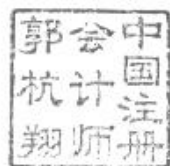 中国注册
会计师
郭杭翔